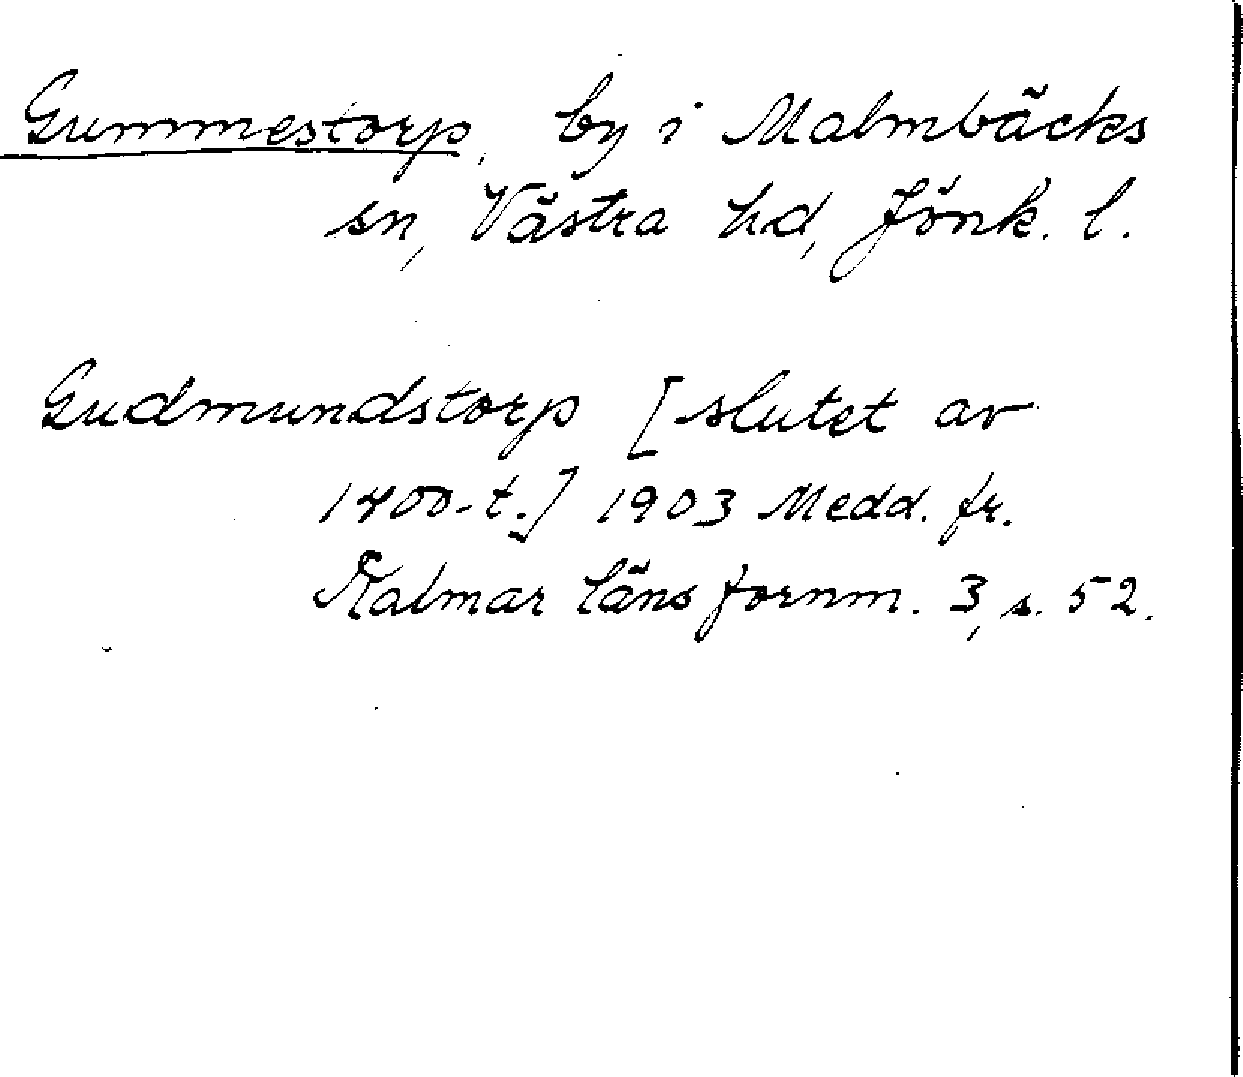 Gummestorp, by i Malmbäcks
sn, Västra hd, Jönk. l.
Gudmundstorp [slutet av
1400-t.] 1903 Medd. fr.
Kalmar läns fornm. 3, s. 52.